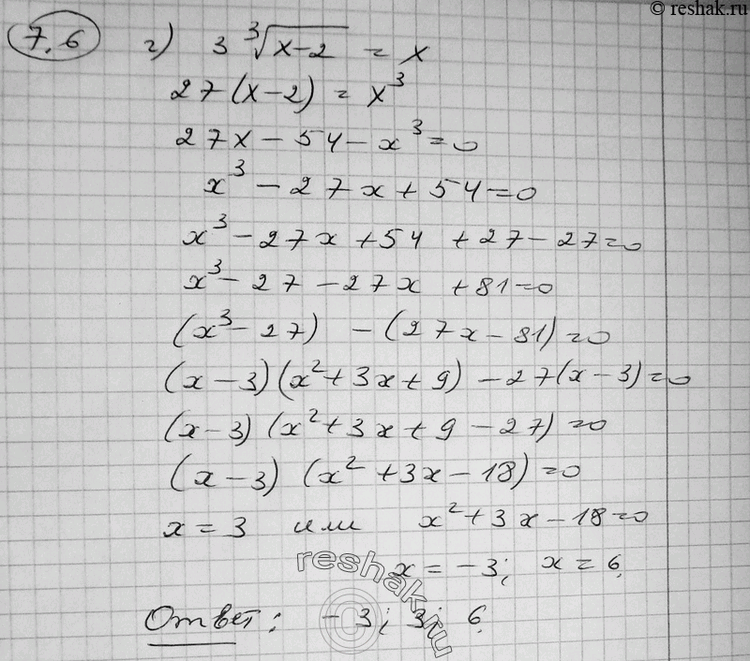 © reshak.ru
7.6 г) 3∛(x-2) = x
27(x-2) = x³
27x - 54 - x³ = 0
x³ - 27x + 54 = 0
x³ - 27x + 54 + 27 - 27 = 0
x³ - 27 - 27x + 81 = 0
(x³ - 27) - (27x - 81) = 0
(x - 3)(x² + 3x + 9) - 27(x - 3) = 0
(x - 3)(x² + 3x + 9 - 27) = 0
(x - 3)(x² + 3x - 18) = 0
x = 3 или x² + 3x - 18 = 0
x = -3; x = 6.
Ответ: -3; 3; 6.
reshak.ru
©